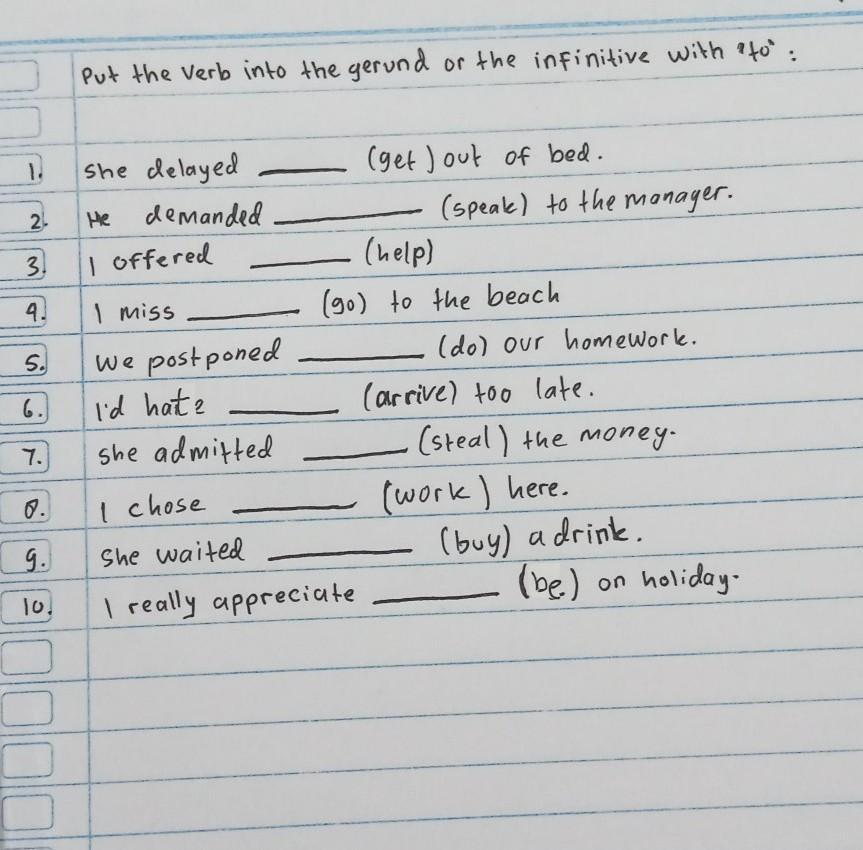 Put the verb into the gerund or the infinitive with "to" :
1. She delayed ______ (get) out of bed.
2. He demanded __________ (speak) to the manager.
3. I offered _______ (help)
4. I miss ________ (go) to the beach
5. We postponed _________ (do) our homework.
6. I'd hate ________ (arrive) too late.
7. She admitted ________ (steal) the money.
8. I chose _________ (work) here.
9. She waited __________ (buy) a drink.
10. I really appreciate _________ (be) on holiday.